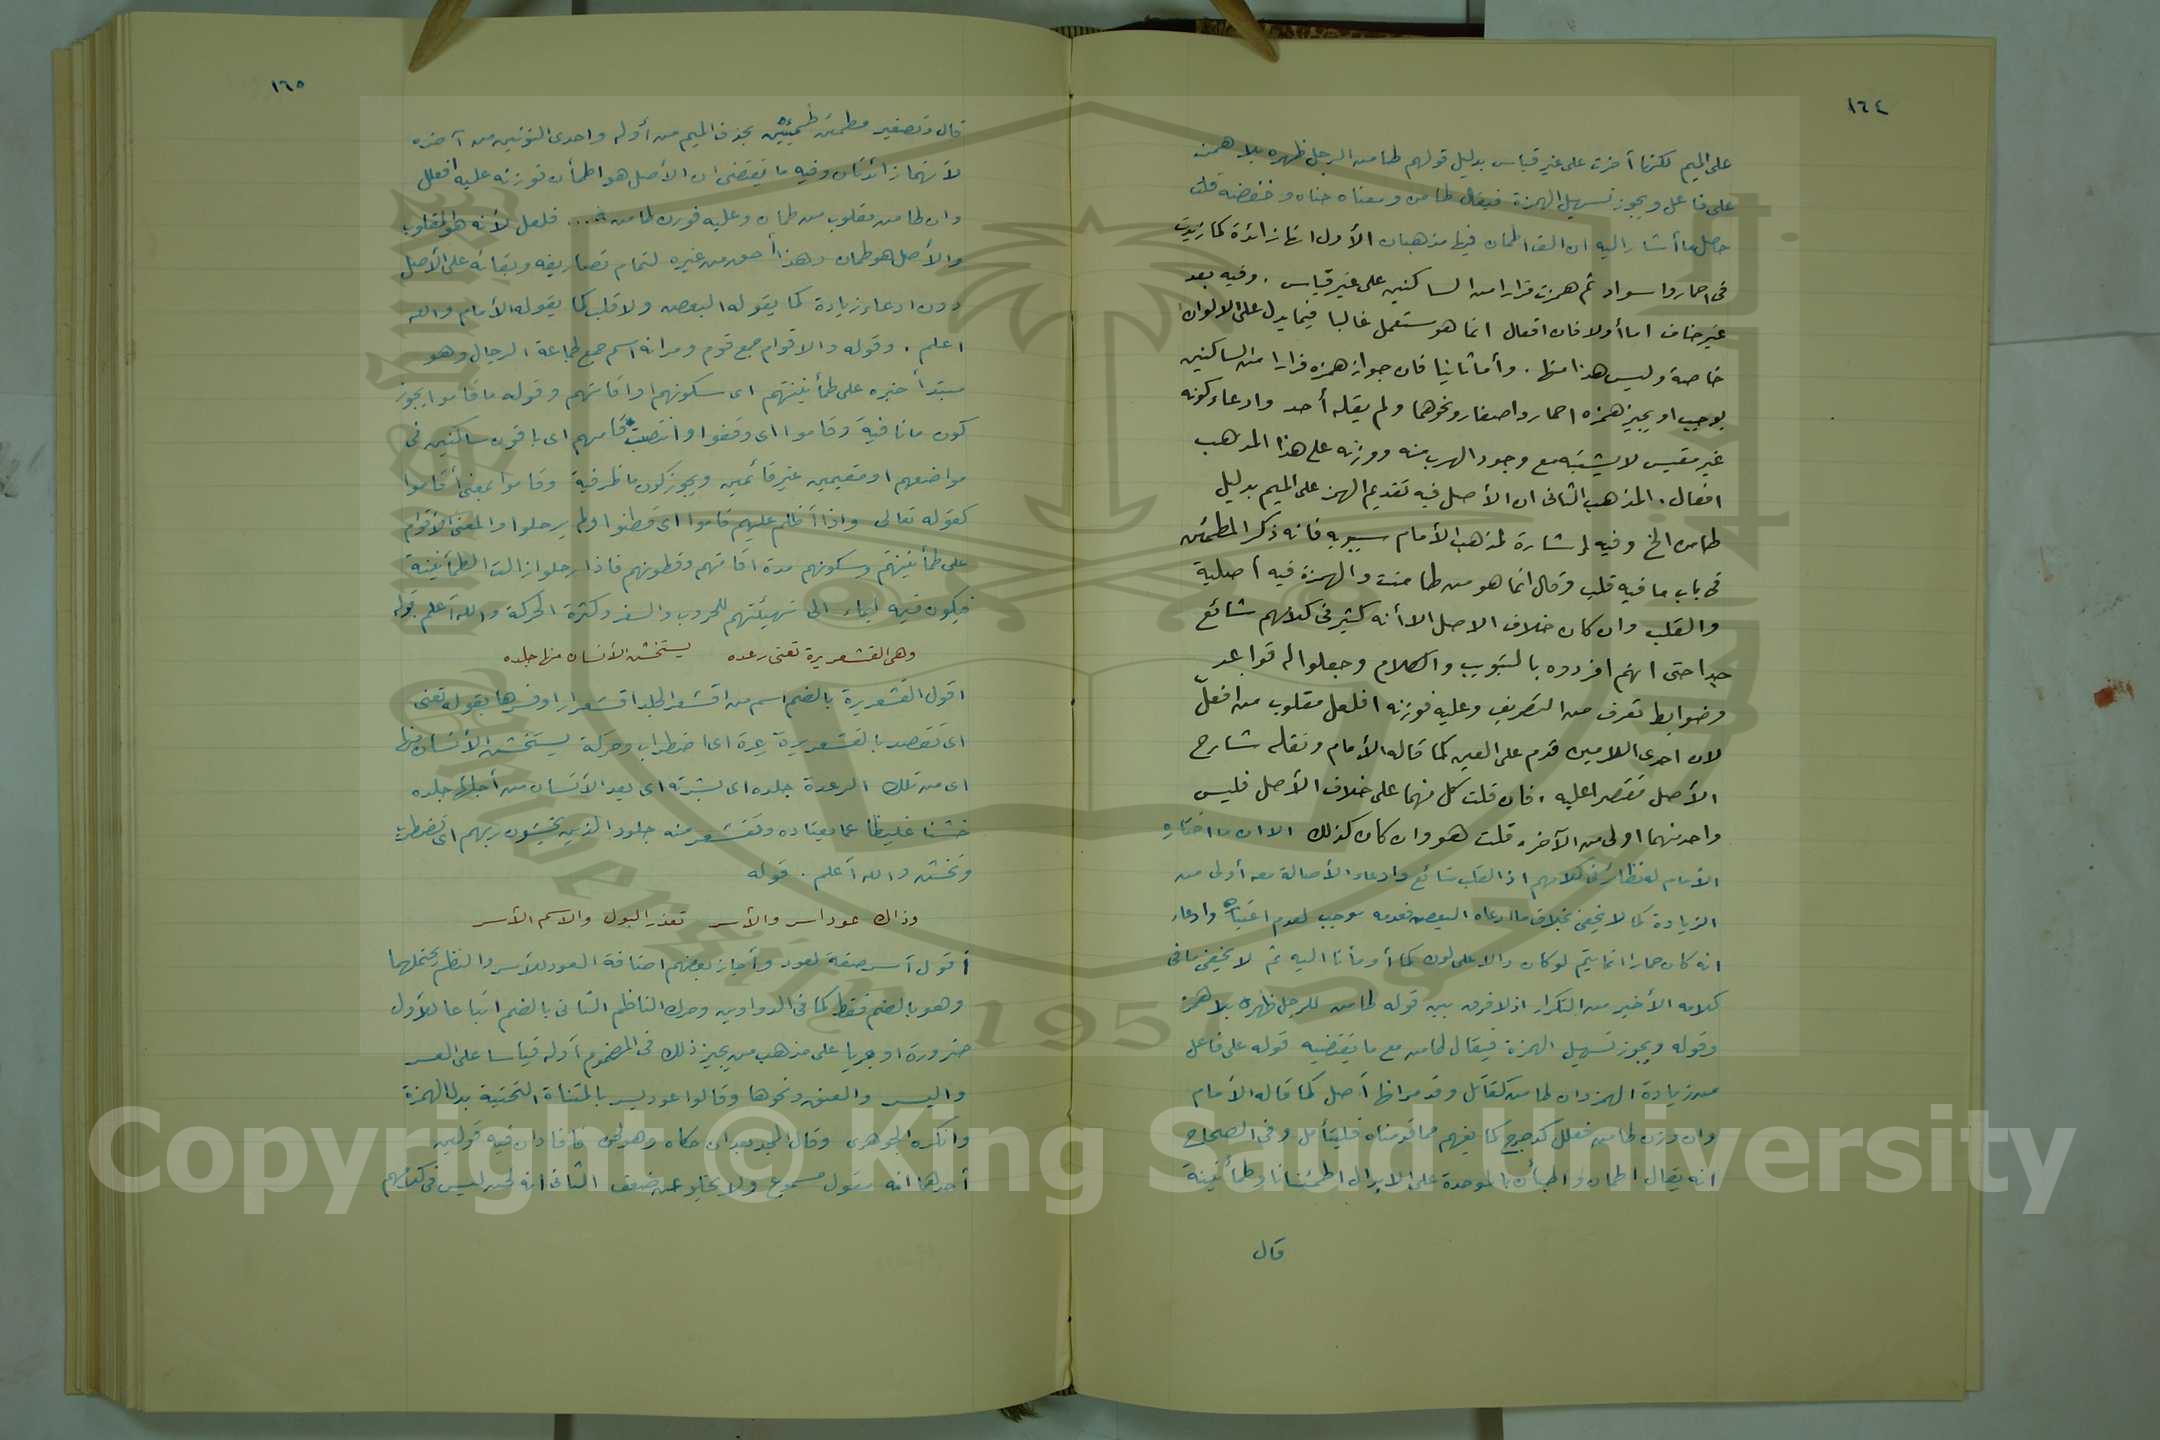 ١٦٤
على الميم لكنها أخرت على غير قياس بدليل قولهم طامن الرجل ظهره بلا همز
على فاعل ويجوز تسهيل الهمزة فيقال طامن ومعناه حناه وخفضه قلت
حاصل ما أشار اليه ان الف اطمان فيها مذهبان الأول انها زائدة كما زيدت
فى احمار واسواد ثم همزت فرارا من الساكنين على غير قياس . وفيه بعد
غير خاف اما أولا فان افعال انما هو مستعمل غالبا فيما يدل على الالوان
خاصة وليس هذا منها . وأما ثانيا فان جواز همزه فرارا من الساكنين
يوجب او يجيز همزه احمار واصفار ونحوهما ولم يقله أحد وادعاء كونه
غير مقيس لا يشبه مع وجود الهرب منه ووزنه على هذا المذهب
افعال . المذهب الثانى ان الأصل فيه تقديم الهمز على الميم بدليل
طامن الخ وفيه إشارة لمذهب الأمام سيبويه فانه ذكر المطمئن
فى باب ما فيه قلب وقال انما هو من طامنت والهمزة فيه أصلية
والقلب وان كان خلاف الاصل الا أنه كثير فى كلامهم شائع
جدا حتى انهم افردوه بالتبويب والكلام وجعلوا له قواعد
وضوابط تعرف من التصريف وعليه فوزنه افلعل مقلوب من افعلّ
لان احدى اللامين قدم على العين كما قاله الأمام ونقله شارح
الأصل مقتصرا عليه . فان قلت كل منهما على خلاف الأصل فليس
واحد منهما اولى من الآخر . قلت هو وان كان كذلك الا ان ما اختاره
الأمام له نظائر فى كلامهم اذ القلب شائع وادعاء الأصالة معه أولى من
الزيادة كما لا يخفى بخلاف ما ادعاه البعض فعدمه موجب لعدم اعتباره وادعاء
انه كان حمارا انما يتم لو كان دالا على لون كما أومأنا اليه ثم لا يخفى ما فى
كلامه الأخير من التكرار اذ لا فرق بين قوله طامن للرجل ظهره بلا همز
وقوله ويجوز تسهيل الهمزة فيقال طامن مع ما يقتضيه قوله على فاعل
من زيادة الهمز وان طامن كقاتل وقد مر انها أصل كما قاله الأمام
وان وزن طامن فعلل كدحرج كما يفهم مما قدمناه فليتأمل وفى الصحاح
انه يقال اطمان واطبأن بالموحدة على الابدال اطمئنانا وطمأنينة
قال
١٦٥
قال وتصغير مطمئن طميئين بحذف الميم من أوله واحدى النونين من آخره
لأنهما زائدتان وفيه ما يقتضى ان الأصل هو اطمأن فوزنه عليه افعلل
وان طامن مقلوب من طمان وعليه فوزن طامن فلعل لأنه هو المقلوب
والأصل هو طمان وهذا أحق من غيره لتمام تصاريفه وبقائه على الأصل
دون ادعاء زيادة كما يقوله البعض ولا قلب كما يقوله الأمام والله
اعلم . وقوله والاقوام جمع قوم ومر انه اسم جمع لجماعة الرجال وهو
مبتدأ خبره على طمأنينتهم اى سكونهم واقامتهم وقوله ما قاموا يجوز
كون ما نافية وقاموا اى وقفوا وانتصبت قامتهم اى باقون ساكنين فى
مواضعهم او مقيمين غير قائمين ويجوز كون ما ظرفية وقاموا بمعنى أقاموا
كقوله تعالى واذا أظلم عليهم قاموا اى قطنوا ولم يرحلوا والمعنى الأقوام
على طمأنينتهم وسكونهم مدة اقامتهم وقطونهم فاذا رحلوا زالت الطمأنينة
فيكون فيه إيماء الى تهيئتهم للحروب والسفر وكثرة الحركة والله أعلم قوله
وهى القشعريرة تعنى رعده يستخشن الأنسان منها جلده
اقول القشعريرة بالضم اسم من اقشعر الجلد اقشعرارا وفسرها بقوله تعنى
اى تقصد بالقشعريرة رعدة اى اضطراب وحركة يستخشن الأنسان منها
اى من تلك الرعدة جلده اى بشرته اى يعد الأنسان من أجلها جلده
خشنا غليظا عما يعتاده وتقشعر منه جلود الذين يخشون ربهم اى تضطرب
وتخشن والله أعلم . قوله
وذاك عود اسر والأسر تعذر البول والاسم الأسر
أقول أسر صفة لعود وأجاز بعضهم اضافة العود للأسر والنظم يحتملهما
وهو بالضم فقط كما فى الدواوين وحرك الناظم الثانى بالضم اتباعا للأول
ضرورة او جريا على مذهب من يجيز ذلك فى المضموم أوله قياسا على العسر
واليسر والعنق ونحوها وقالوا عود يسر بالمثناة التحتية بدل الهمزة
وانكره الجوهرى وقال المجد بعد ان حكاه وهو لحن فافاد ان فيه قولين
أحدهما انه مقول مسموع ولا يخلو عن ضعف الثانى أنه لحن ليس فى كلامهم
Copyright © King Saud University
1957